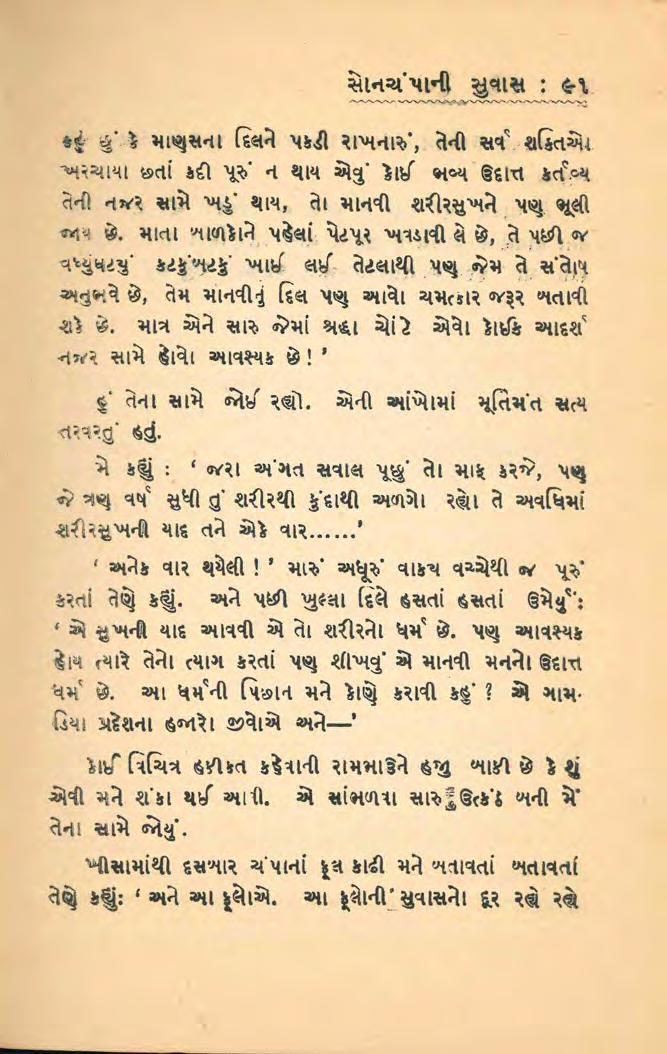 સોનચંપાની સુવાસ : ૯૧
કહું છું કે માણસના દિલને પકડી રાખનારું, તેની સર્વ શક્તિઓ
ખરચાયા છતાં કદી પૂરું ન થાય એવું કોઈ ભવ્ય ઉદાત્ત કર્તવ્ય
તેની નજર સામે ખડું થાય, તો માનવી શરીરસુખને પણ ભૂલી
જાય છે. માતા બાળકોને પહેલાં પેટપૂર ખવડાવી લે છે, તે પછી જ
વધ્યુંઘટયું કટકુંબટકું ખાઈ લઈ તેટલાથી પણ જેમ તે સંતોષ
અનુભવે છે, તેમ માનવીનું દિલ પણ આવો ચમત્કાર જરૂર બતાવી
શકે છે. માત્ર એને સારુ જેમાં શ્રદ્ધા ચોંટે એવો કોઈક આદર્શ
નજર સામે હોવો આવશ્યક છે ! ’
હું તેના સામે જોઈ રહ્યો. એની આંખોમાં મૂર્તિમંત સત્ય
તરવરતું હતું.
મેં કહ્યું : ‘ જરા અંગત સવાલ પૂછું તો માફ કરજે, પણ
જે ત્રણ વર્ષ સુધી તું શરીરથી કુંદાથી અળગો રહ્યો તે અવધિમાં
શરીરસુખની યાદ તને એકે વાર......’
‘ અનેક વાર થયેલી ! ’ મારું અધૂરું વાકય વચ્ચેથી જ પૂરું
કરતાં તેણે કહ્યું. અને પછી ખુલ્લા દિલે હસતાં હસતાં ઉમેર્યું :
‘ એ સુખની યાદ આવવી એ તો શરીરનો ધર્મ છે. પણ આવશ્યક
હોય ત્યારે તેનો ત્યાગ કરતાં પણ શીખવું એ માનવી મનનો ઉદાત્ત
ધર્મ છે. આ ધર્મની પિછાન મને કોણે કરાવી કહું ? એ ગામ-
ડિયા પ્રદેશના હજારો જીવોએ અને—’
કોઈ વિચિત્ર હકીકત કહેવાની રામભાઉને હજી બાકી છે કે શું
એવી મને શંકા થઈ આવી. એ સાંભળવા સારુ ઉત્કંઠ બની મેં
તેના સામે જોયું.
ખીસામાંથી દસબાર ચંપાનાં ફૂલ કાઢી મને બતાવતાં બતાવતાં
તેણે કહ્યું: ‘ અને આ ફૂલોએ. આ ફૂલોની સુવાસનો દૂર રહ્યે રહ્યે